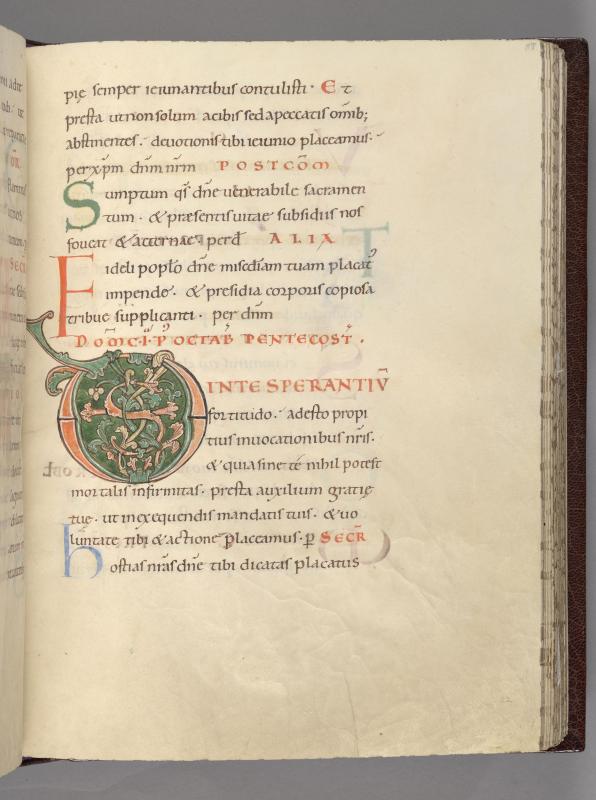 pię semper ieiunantibus contulisti · Et
presta ut non solum a cibis sed a peccatis omīb;
abstinentes · deuotionis tibi ieiunio placeamus ·
per xp̄m dn̄m nr̄m POSTCOM̄
Sumptum qs̄ dn̄e uenerabile sacramen
tum · & præsentis uitae subsidiis nos
foueat & aeternae · per d̄ ALIA
Fideli poplo dn̄e misc̄diam tuam placatꝰ
impende · & presidia corporis copiosa
tribue supplicanti · per dn̄m
DOM̄C · I · P̾ OCTAB̄ PENTECOST̄ ·
IN TE SPERANTIŪ
fortitudo · adesto propi
tius inuocationibus nr̄is ·
& quia sine te nihil potest
mortalis infirmitas · presta auxilium gratię
tuę · ut in exequendis mandatis tuis · & uo
luntate tibi & actione placeamus · ꝑ SECR̄
hostias nr̄as dn̄e tibi dicatas placatus